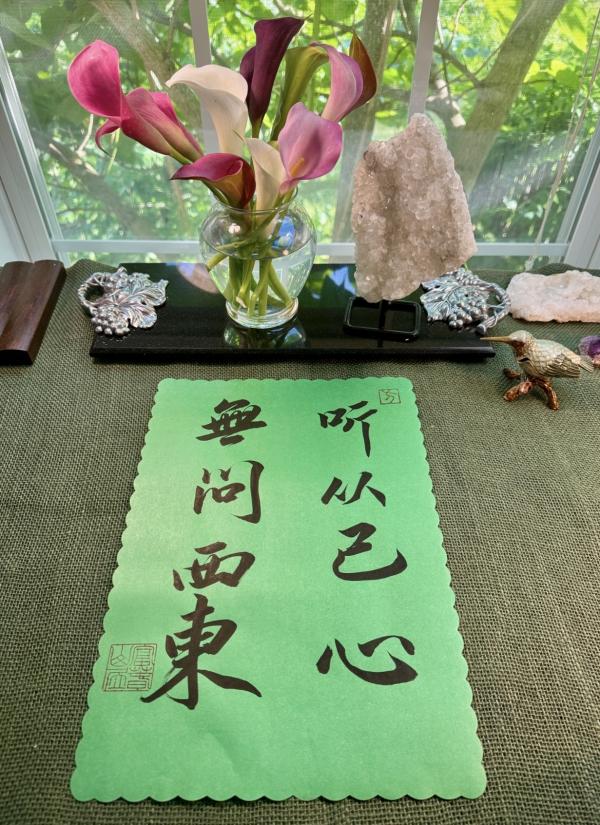 听从己心
無问西東